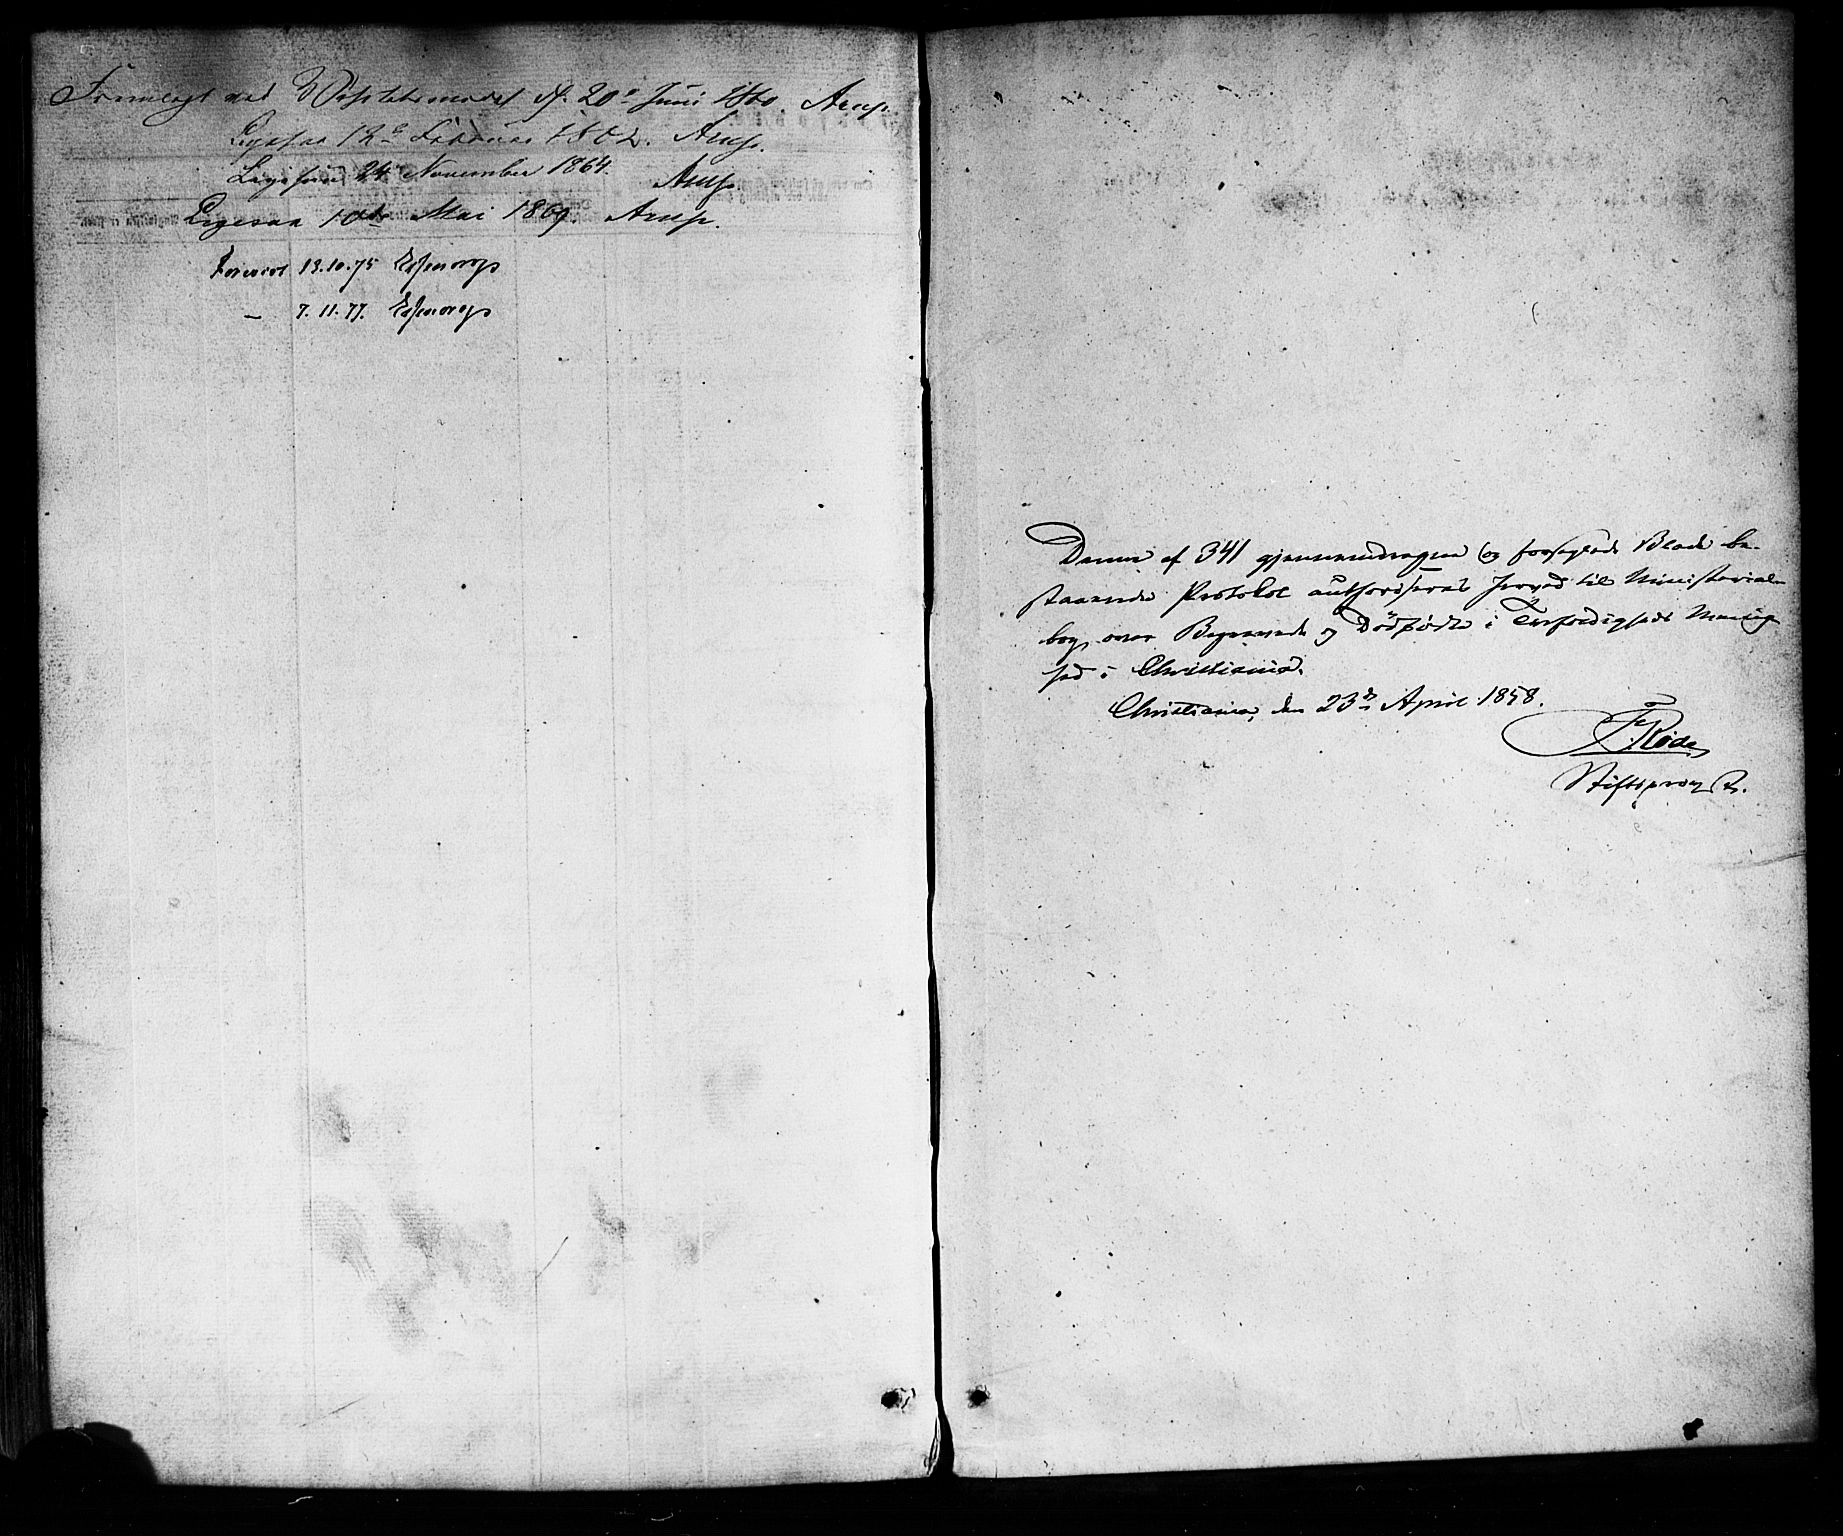 Fremlagt ved Visitatsmødet d. 20de Juni 1860. Arup.
Ligesaa 12te Februar 1862. Arup.
Ligesaa 24 November 1864. Arup.
Ligesaa 10de Mai 1869 Arup.
Foreviist 13.10.75 Essendrop
— 7.11.77. Essendrop
Denne af 341 gjennemdragne og forseglede Blade be-
staaende Protokol authoriseres herved til Ministerial-
bog over Begravede og Dødfødte i Trefoldigheds Menig-
hed i Christiania.
Christiania, den 23de April 1858.
F. Rode
Stiftsprovst.